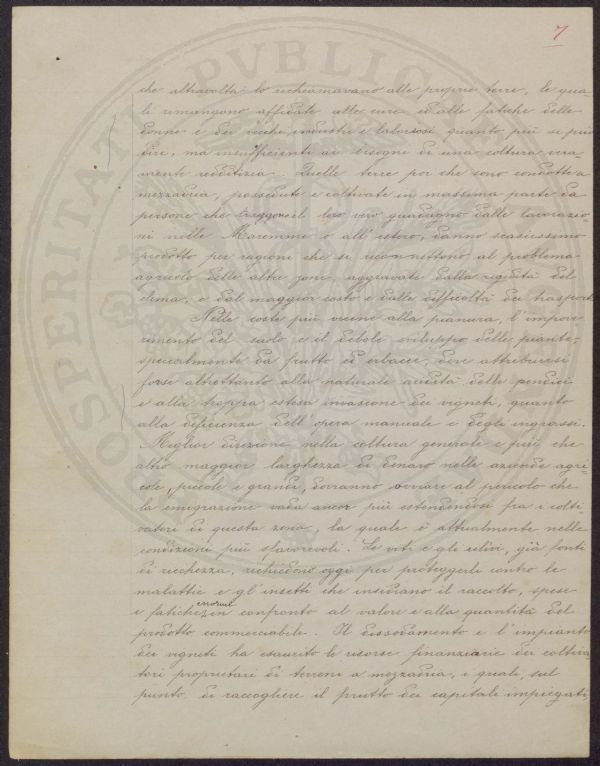 7
che altravolta lo richiamavano alle proprie terre, le qua-
li rimangono affidate alle cure ed alle fatiche delle
donne e dei vecchi, industri e laboriosi quanto più si può
dire, ma insufficienti ai bisogni di una coltura vera-
mente redditizia. Quelle terre poi che sono condotte a
mezzadria, possedute e coltivate in massima parte da
persone che traggono il loro vero guadagno dalle lavorazio-
ni nelle Maremme o all'estero, danno scarsissimo
prodotto per ragioni che si riconnettono al problema
agricolo delle altre zone aggravate dalla rigidità del
clima, e dal maggior costo e dalle difficoltà dei trasporti.
Nelle coste più vicine alla pianura, l'impove-
rimento del suolo e il debole sviluppo delle piante,
specialmente da frutto ed erbacee, deve attribuirsi
forse altrettanto alla naturale aridità delle pendici
e alla troppa estesa invasione dei vigneti, quanto
alla deficienza dell'opera manuale e degli ingrassi.
Miglior direzione nella coltura generale e più che
altro maggior larghezza di denaro nelle aziende agri-
cole, piccole e grandi, dovranno ovviare al pericolo che
la emigrazione vada ancor più estendendosi fra i colti-
vatori di questa zona, la quale è attualmente nelle
condizioni più sfavorevoli. Le viti e gli ulivi, già fonti
di ricchezza, richiedono oggi per proteggerli contro le
malattie e gl'insetti che insidiano il raccolto, spese
e fatiche enormi in confronto al valore e alla quantità del
prodotto commerciabile. Il dissodamento e l'impianto
dei vigneti ha esaurito le risorse finanziarie dei coltiva-
tori proprietari di terreni a mezzadria, i quali, sul
punto di raccogliere il frutto dei capitali impiegati,
PROSPERITATI PVBLICAE